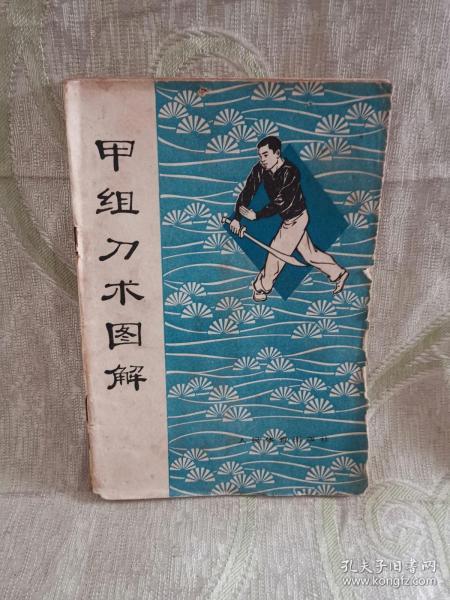 甲组刀术图解
人民体育出版社
孔夫子旧书网
www.kongfz.com